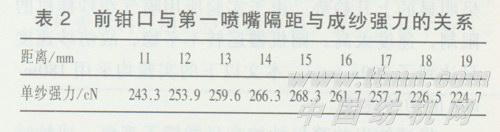 表2 前钳口与第一喷嘴隔距与成纱强力的关系
距离/mm 11 12 13 14 15 16 17 18 19
单纱强力/cN 243.3 253.9 259.6 266.3 268.3 261.7 257.7 226.5 224.7
www.ttmn.com
中国纺机网